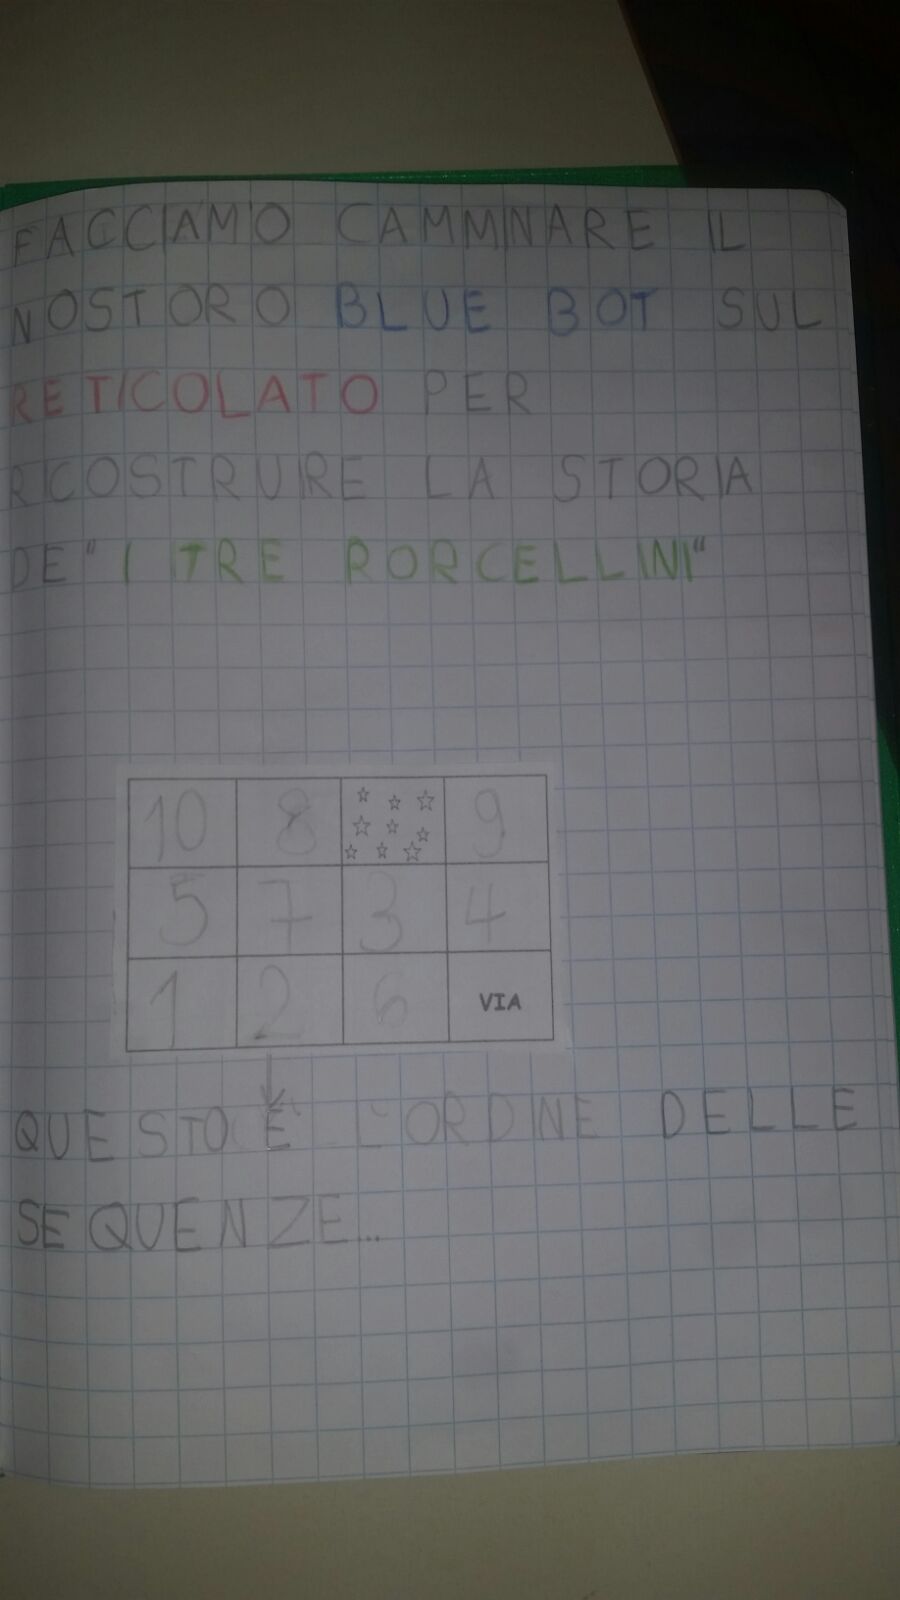 FACCIAMO CAMMINARE IL
NOSTORO BLUE BOT SUL
RETICOLATO PER
RICOSTRUIRE LA STORIA
DE "I TRE RORCELLINI"
10 8 9
5 7 3 4
1 2 6 VIA
QUESTO È L'ORDINE DELLE
SEQUENZE...